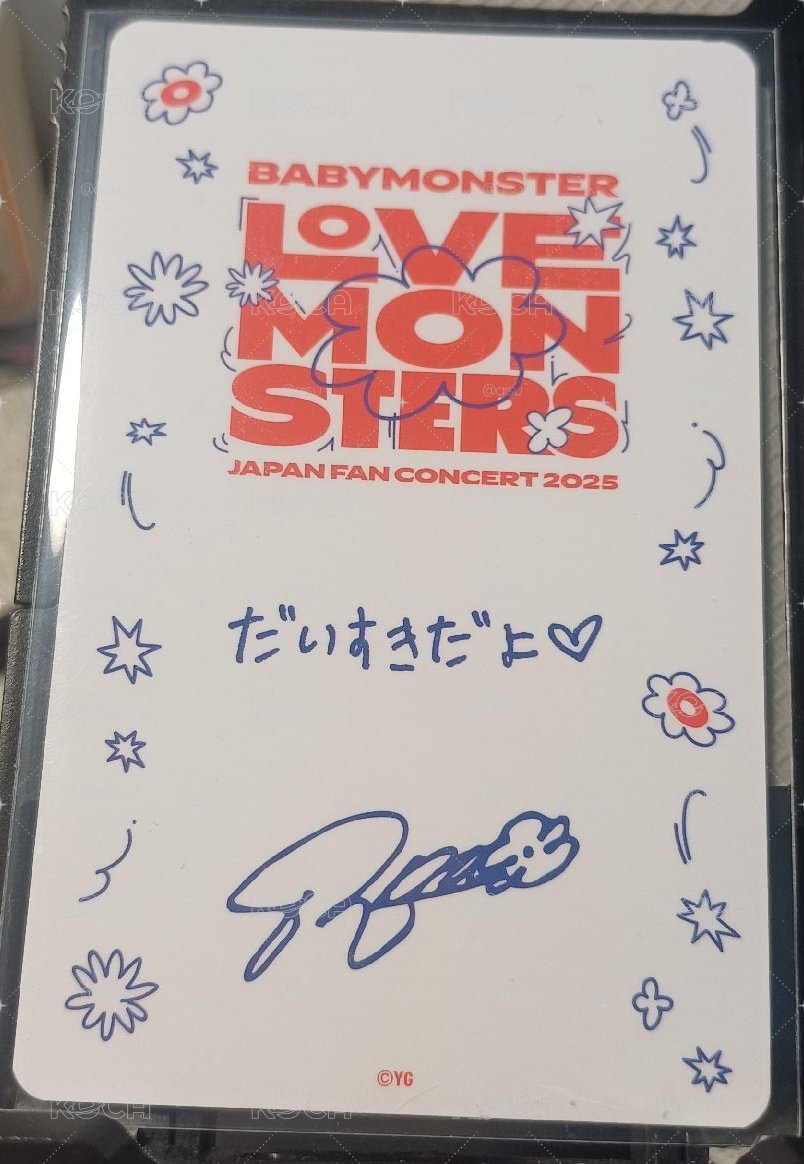 BABYMONSTER
LOVE
MON
STERS
JAPAN FAN CONCERT 2025
だいすきだよ♡
©YG
KOCA
@gsu